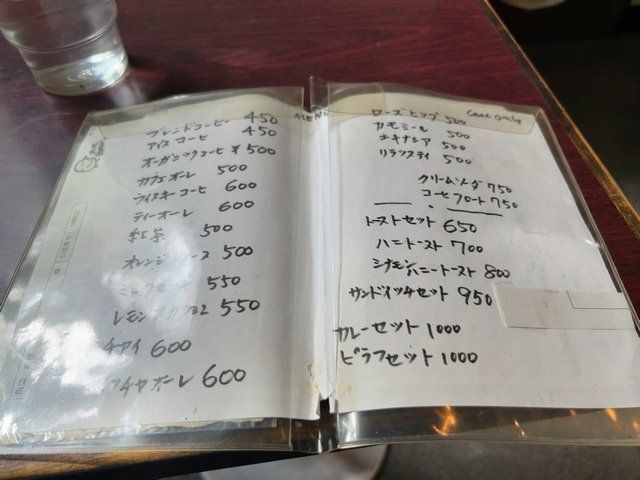 ブレンドコーヒー 450
アイスコーヒ 450
オーガニックコーヒ ¥500
カフェオーレ 500
ウイスキーコーヒ 600
ティーオーレ 600
紅茶 500
オレンジ 500
550
レモン 550
チャイ 600
ッチャオーレ 600
MENU
ローズヒップ 500
Cash only
カモミール 500
エキナシア 500
リラックスティ 500
クリームソーダ 750
コーヒフロート 750
トーストセット 650
ハニトースト 700
シナモンハニートースト 800
サンドイッチセット 950
カレーセット 1000
ピラフセット 1000